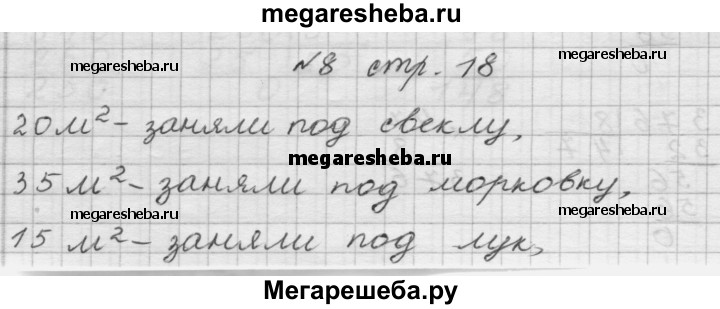 megaresheba.ru
№8 стр. 18
megaresheba.ru
megaresheba.ru
20 м² - заняли под свеклу,
megaresheba.ru
35 м² - заняли под морковку,
megaresheba.ru
megaresheba.ru
15 м² - заняли под лук,
Мегарешеба.ру